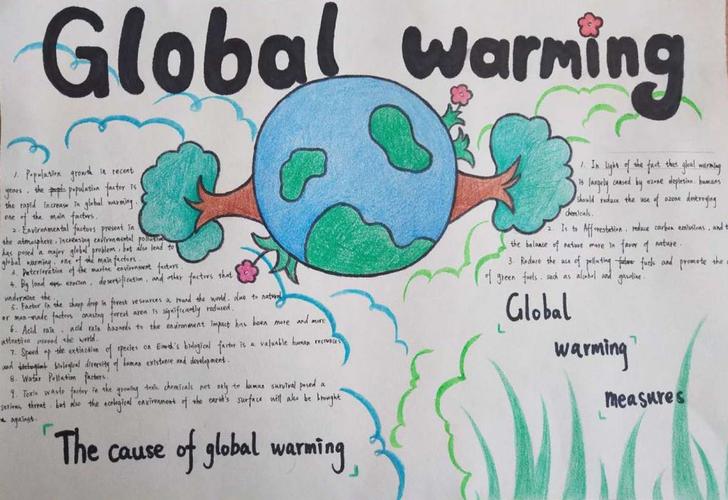 Global warming
1. Population growth in recent
years, the population factor is
the rapid increase in global warming,
one of the main factors.
2. Environmental factors present in
the atmosphere, increasing environmental pollution
has posed a major global problem, but also lead to
global warming, one of the main factors.
3. Deterioration of the marine environment factors
4. By land erosion, desertification, and other factors that
undermine the
5. Factor in the sharp drop in forest resources a round the world, due to natural
or man-made factors causing forest area is significantly reduced.
6. Acid rain, acid rain hazards to the environment impact has been more and more
attention around the world.
7. Speed up the extinction of species on Earth's biological factor is a valuable human resources
and biological diversity of human existence and development.
8. Water Pollution factors.
9. Toxic waste factor in the growing toxic chemicals not only to human survival posed a
serious threat, but also the ecological environment of the earth's surface will also be brought
againgt.
The cause of global warming
1. In light of the fact that gloal warming
is largely caused by ozone depletion, humans
should reduce the use of ozone destroying
chemicals.
2. Is to Afforestation, reduce carbon emissions, and
the balance of nature more in favor of nature.
3. Reduce the use of polluting fuels and promote the
of green fuels, such as alcohol and gasoline.
Global
warming
measures